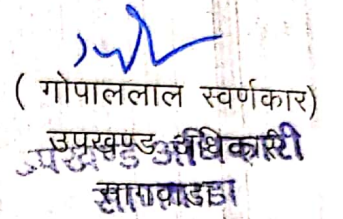 ( गोपाललाल स्वर्णकार)
उपखण्ड अधिकारी
सागवाडा